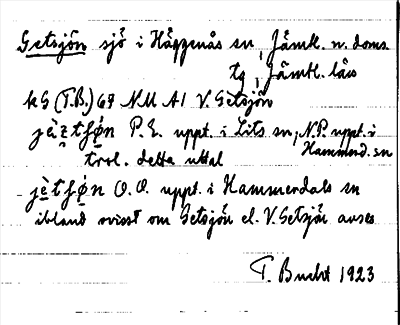 Getsjön sjö i Häggenås sn, Jämtl. n. doms.
tg, Jämtl. län
kG (T.B.) 67 N.U. A1 V. Getsjön
P. E. uppt. i Lits sn, N.P. uppt. i
trol. detta uttal Hammerd. sn
O. O. uppt. i Hammerdals sn
ibland ovisst om Getsjön el. V. Getsjön avses
T. Bucht 1923